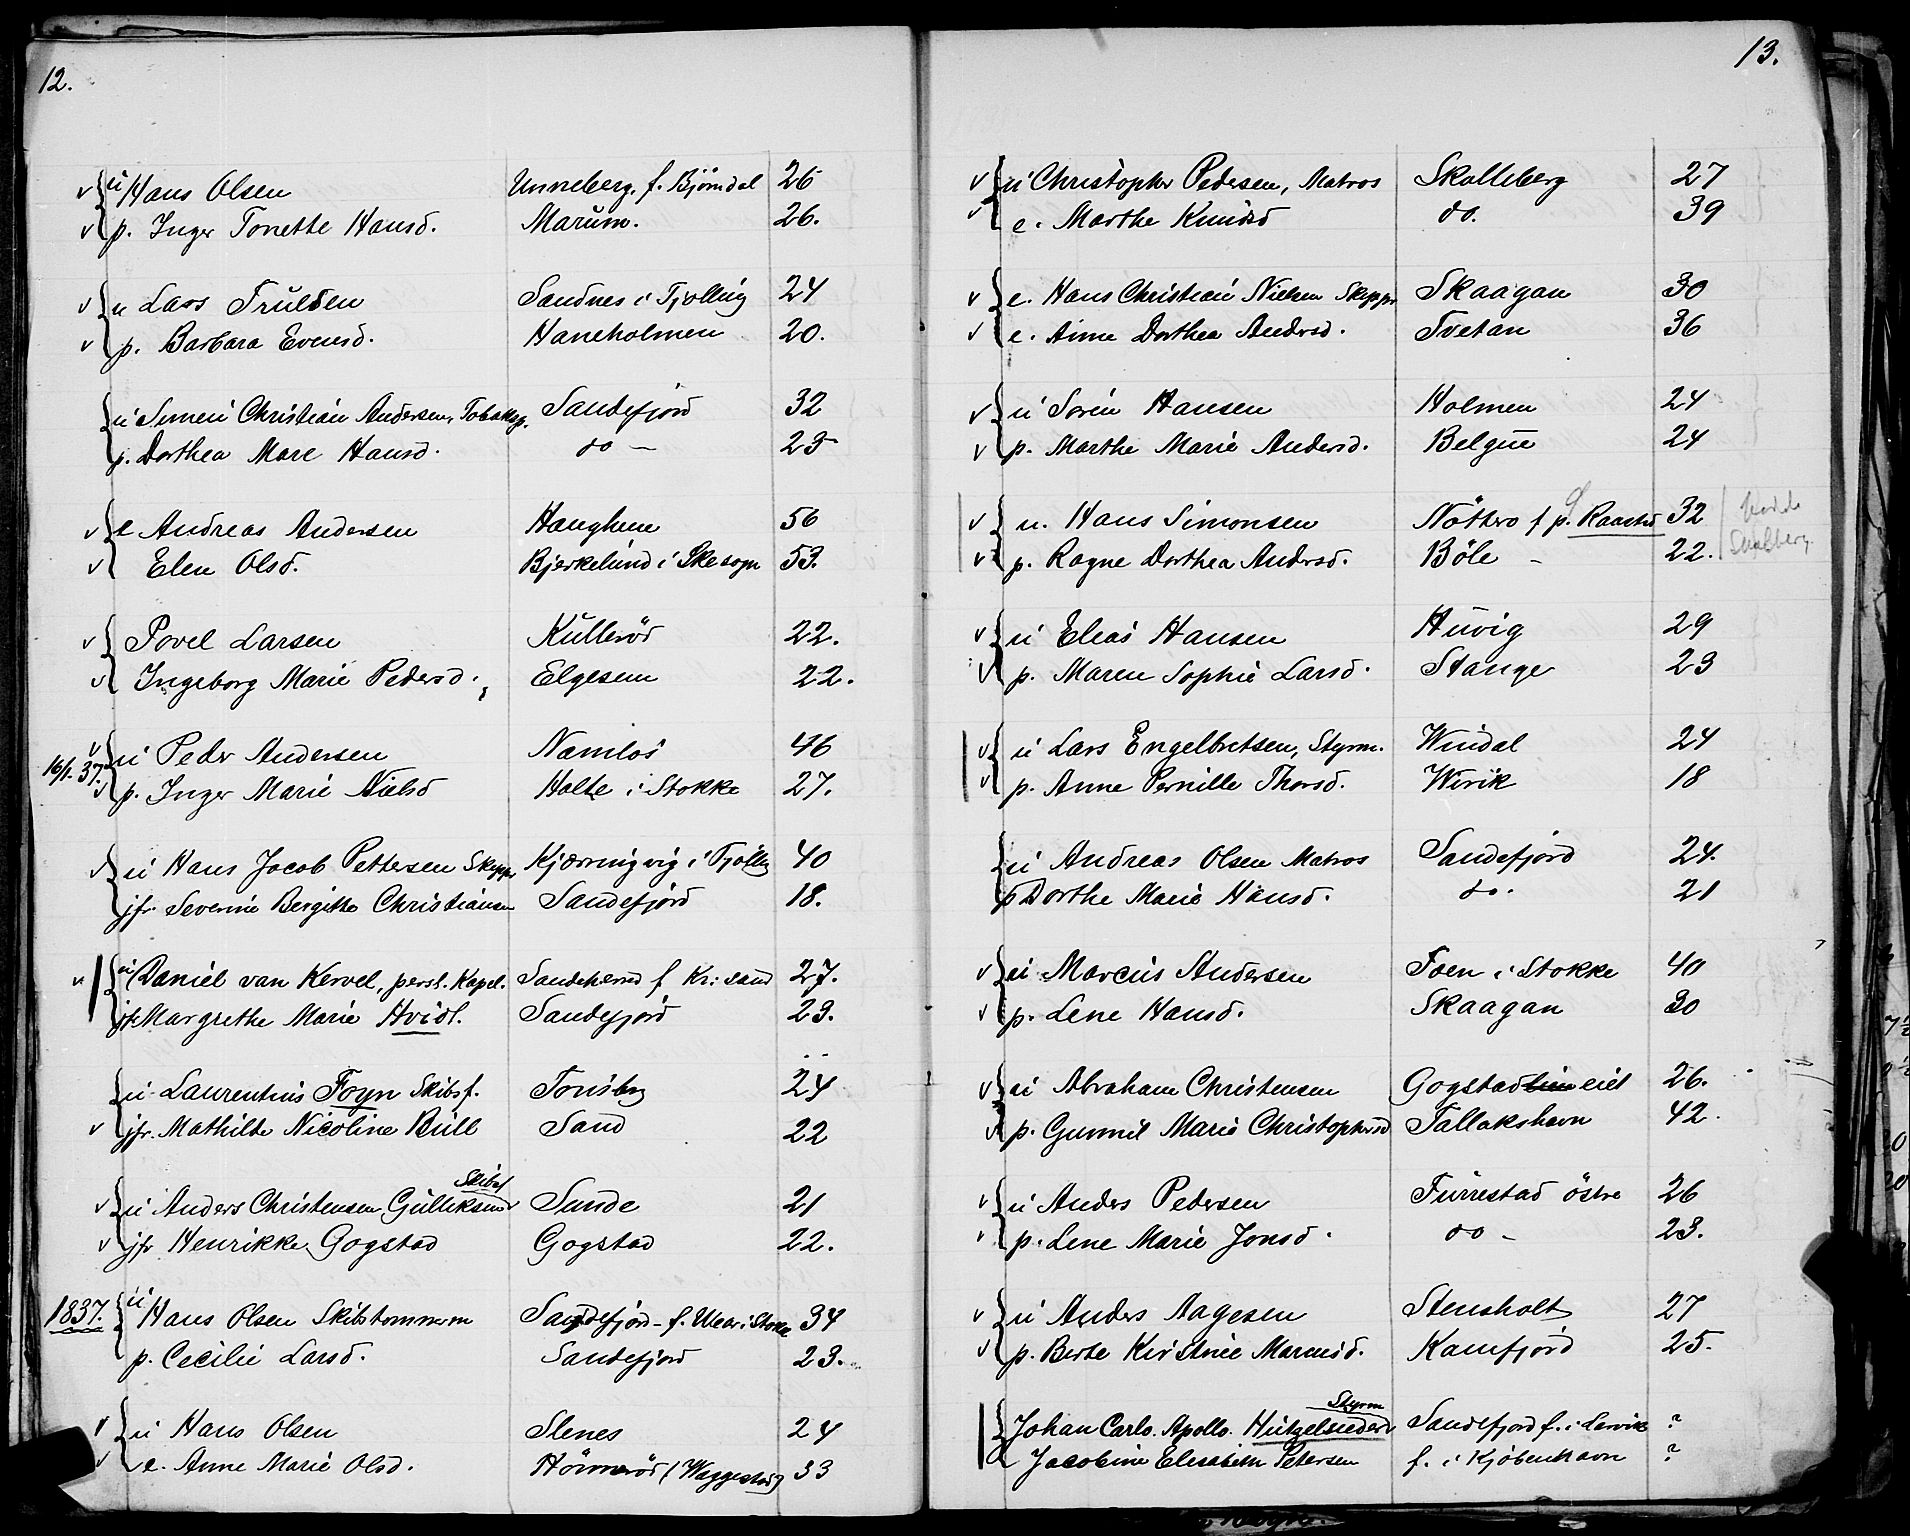 12.
v u Hans Olsen Unneberg, f. Bjørndal 26
v p. Inger Tonette Hansd. Marum. 26.
v u Lars Trulsen Sandnes i Tjølling 24
v p. Barbara Evensd. Haneholmen 20.
u Simen Christian Andersen, Tobaksp. Sandefjord 32
p. Dorthea Mare Hansd. do — 25
v e Andreas Andersen Haughem 56
v Elen Olsd. Bjerkelund i Skesogn 53.
v Povel Larsen Kullerød 22.
v Ingeborg Marie Pedersd. Elgesem 22.
16/1. 37. v u Peder Andersen Namløs 46
v p. Inger Marie Nielsd Holte i Stokke 27.
v u Hans Jacob Pettersen Skipper Kjærringvig i Tjølling 40
jfr. Severine Bergitte Christiansen Sandefjord 18.
v u Daniel van Kervel, persl. Kapel. Sandeherred f Kr:sand 27.
jfr Margrethe Marie Hvidt. Sandefjord 23.
u Laurentius Foyn Skibsf. Tønsbrg 24
v jfr. Mathilde Nicoline Bull Sand 22
Skibsf
v u Anders Christensen Gulliksen Sunde 21
v jfr Henrikke Gogstad Gogstad 22.
1837. u Hans Olsen Skibstømmerm Sandefjord - f. Wear i Stokke 34
p. Cecilie Larsd. Sandefjord 23.
v u Hans Olsen Slenes 24
v e. Anne Marie Olsd. Hönnerød (Waggestad) 33
13.
v u Christopher Pedersen, Matros Skalleberg 27
v e. Marthe Knudsd do. 39
v e. Hans Christian Nielsen Skipper Skaagan 30
v e. Anne Dorthea Andersd. Tvetan 36
v u Soren Hansen Holmen 24
v p. Marthe Marie Andersd. Belgau 24
v u. Hans Simonsen Nöttero f p. Raastad 32
Skalberg
v p. Ragne Dorthea Andersd. Böle - 22.
v u Elias Hansen Huvig 29
v p. Maren Sophie Larsd. Stange 23
v u Lars Engelbretsen, Styrm. Windal 24
v p. Anne Pernille Thorsd. Wirik 18
u Andreas Olsen Matros Sandefjord 24.
p Dorthe Marie Hansd. do. 21
v u Marcus Andersen Foen i Stokke 40
v p. Lene Hansd. Skaagan 30
v u Abraham Christensen Gogstad eiet 26.
v p. Gunnil Marie Christophersd Tallakshavn 42.
v u Anders Pedersen Furrestad östre 26
v p. Lene Marie Jonsd. do - 23.
v u Anders Aagesen Stensholt 27
v p. Berte Kirstine Marcusd. Kamfjord 25.
Styrm
Johan Carlo. Apollo. Hutzelsieder Sandefjord f. i Larvik ?
Jacobine Elisabeth Petersen f. i Kjøbenhavn ?